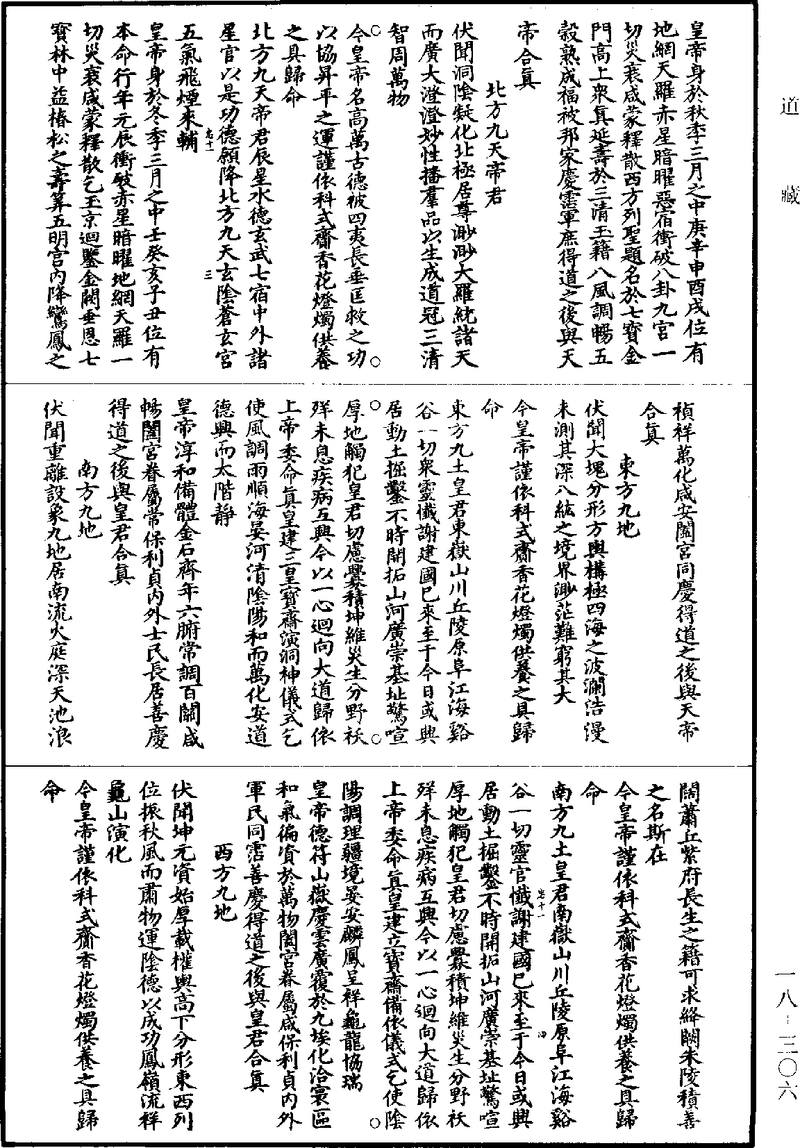 道藏
皇帝身於秋季三月之中庚辛申酉戌位有
地網天羅赤星暗曜惡宿衝破八卦九宮一
切災衰咸蒙釋散西方列聖題名於七寶金
門高上衆真延壽於三清玉籍八風調暢五
穀熟成福被邦家慶霑軍庶得道之後與天
帝合眞
北方九天帝君
伏聞洞陰凝化北極居尊渺渺大羅統諸天
而廣大澄澄妙性播羣品以生成道冠三清
智周萬物
今皇帝名高萬古德被四夷長垂匡救之功
以協昇平之運謹依科式齋香花燈燭供養
之具歸命
北方九天帝君辰星水德玄武七宿中外諸
星官以是功德願降北方九天玄陰蒼玄宮
五氣飛煙來輔
三
皇帝身於冬季三月之中壬癸亥子丑位有
本命行年元辰衝破赤星暗曜地網天羅一
切災衰咸蒙釋散乞玉京迴鑒金闕垂恩七
寶林中益椿松之壽算五明宮內降鸞鳳之
禎祥萬化咸安闔宮同慶得道之後與天帝
合眞
東方九地
伏聞大塊分形方輿構極四海之波瀾浩漫
未測其深八紘之境界渺茫難窮其大
今皇帝謹依科式齋香花燈燭供養之具歸
命
東方九土皇君東嶽山川丘陵原阜江海谿
谷一切衆靈懺謝建國已來至于今日或興
居動土掘鑿不時開拓山河廣崇基址驚喧
厚地觸犯皇君切慮釁積坤維災生分野祅
殃未息疾病互興今以一心迴向大道歸依
上帝委命眞皇建三皇寶齋演洞神儀式乞
使風調雨順海晏河清陰陽和而萬化安道
德興而太階靜
皇帝淳和備體金石齊年六腑常調百關咸
暢闔宮眷屬常保利貞內外士民長居善慶
得道之後與皇君合眞
南方九地
伏聞重離設象九地居南流火庭深天池浪
闊蕭丘紫府長生之籍可求絳闕朱陵積善
之名斯在
今皇帝謹依科式齋香花燈燭供養之具歸
命
南方九土皇君南嶽山川丘陵原阜江海谿
谷一切靈官懺謝建國已來至于今日或興
四
居動土掘鑿不時開拓山河廣崇基址驚喧
厚地觸犯皇君切慮釁積坤維災生分野祅
殃未息疾病互興今以一心迴向大道歸依
上帝委命眞皇建立寶齋備依儀式乞使陰
陽調理疆境晏安麟鳳呈祥龜龍協瑞
皇帝德符山嶽慶雲廣覆於九埃化洽寰區
和氣徧資於萬物闔宮眷屬咸保利貞內外
軍民同霑善慶得道之後與皇君合眞
西方九地
伏聞坤元資始厚載權輿高下分形東西列
位振秋風而肅物運陰德以成功鳳嶺流祥
龜山演化
今皇帝謹依科式齋香花燈燭供養之具歸
命
一八-三〇六